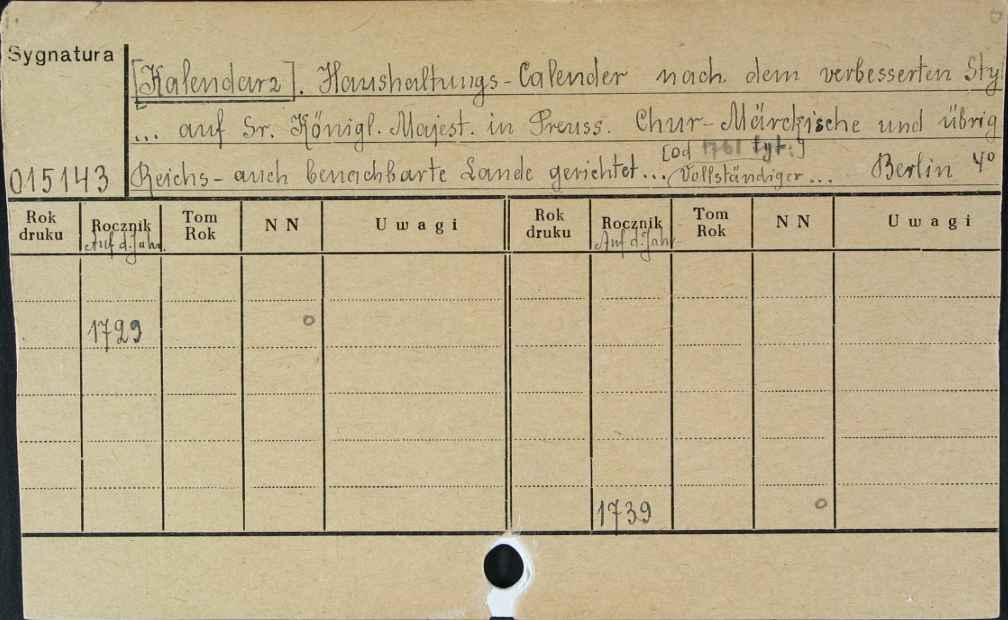 Sygnatura
[Kalendarz]. Haushaltungs-Calender nach dem verbesserten Sty
... auf Sr. Königl. Majest. in Preuss. Chur-Märckische und übrig
[od 1761 tyt:]
015143 Reichs- auch benachbarte Lande gerichtet... (Vollständiger... Berlin 4º
Rok druku Rocznik Tom Rok N N Uwagi Rok druku Rocznik Tom Rok N N Uwagi
Auf d. Jahr. Auf d. Jahr
1729 o
1739 o